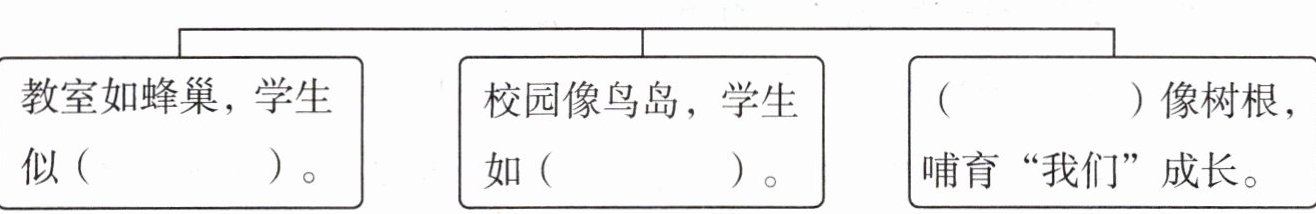 教室如蜂巢，学生
似（　　　　）。
校园像鸟岛，学生
如（　　　　）。
（　　　　）像树根，
哺育“我们”成长。